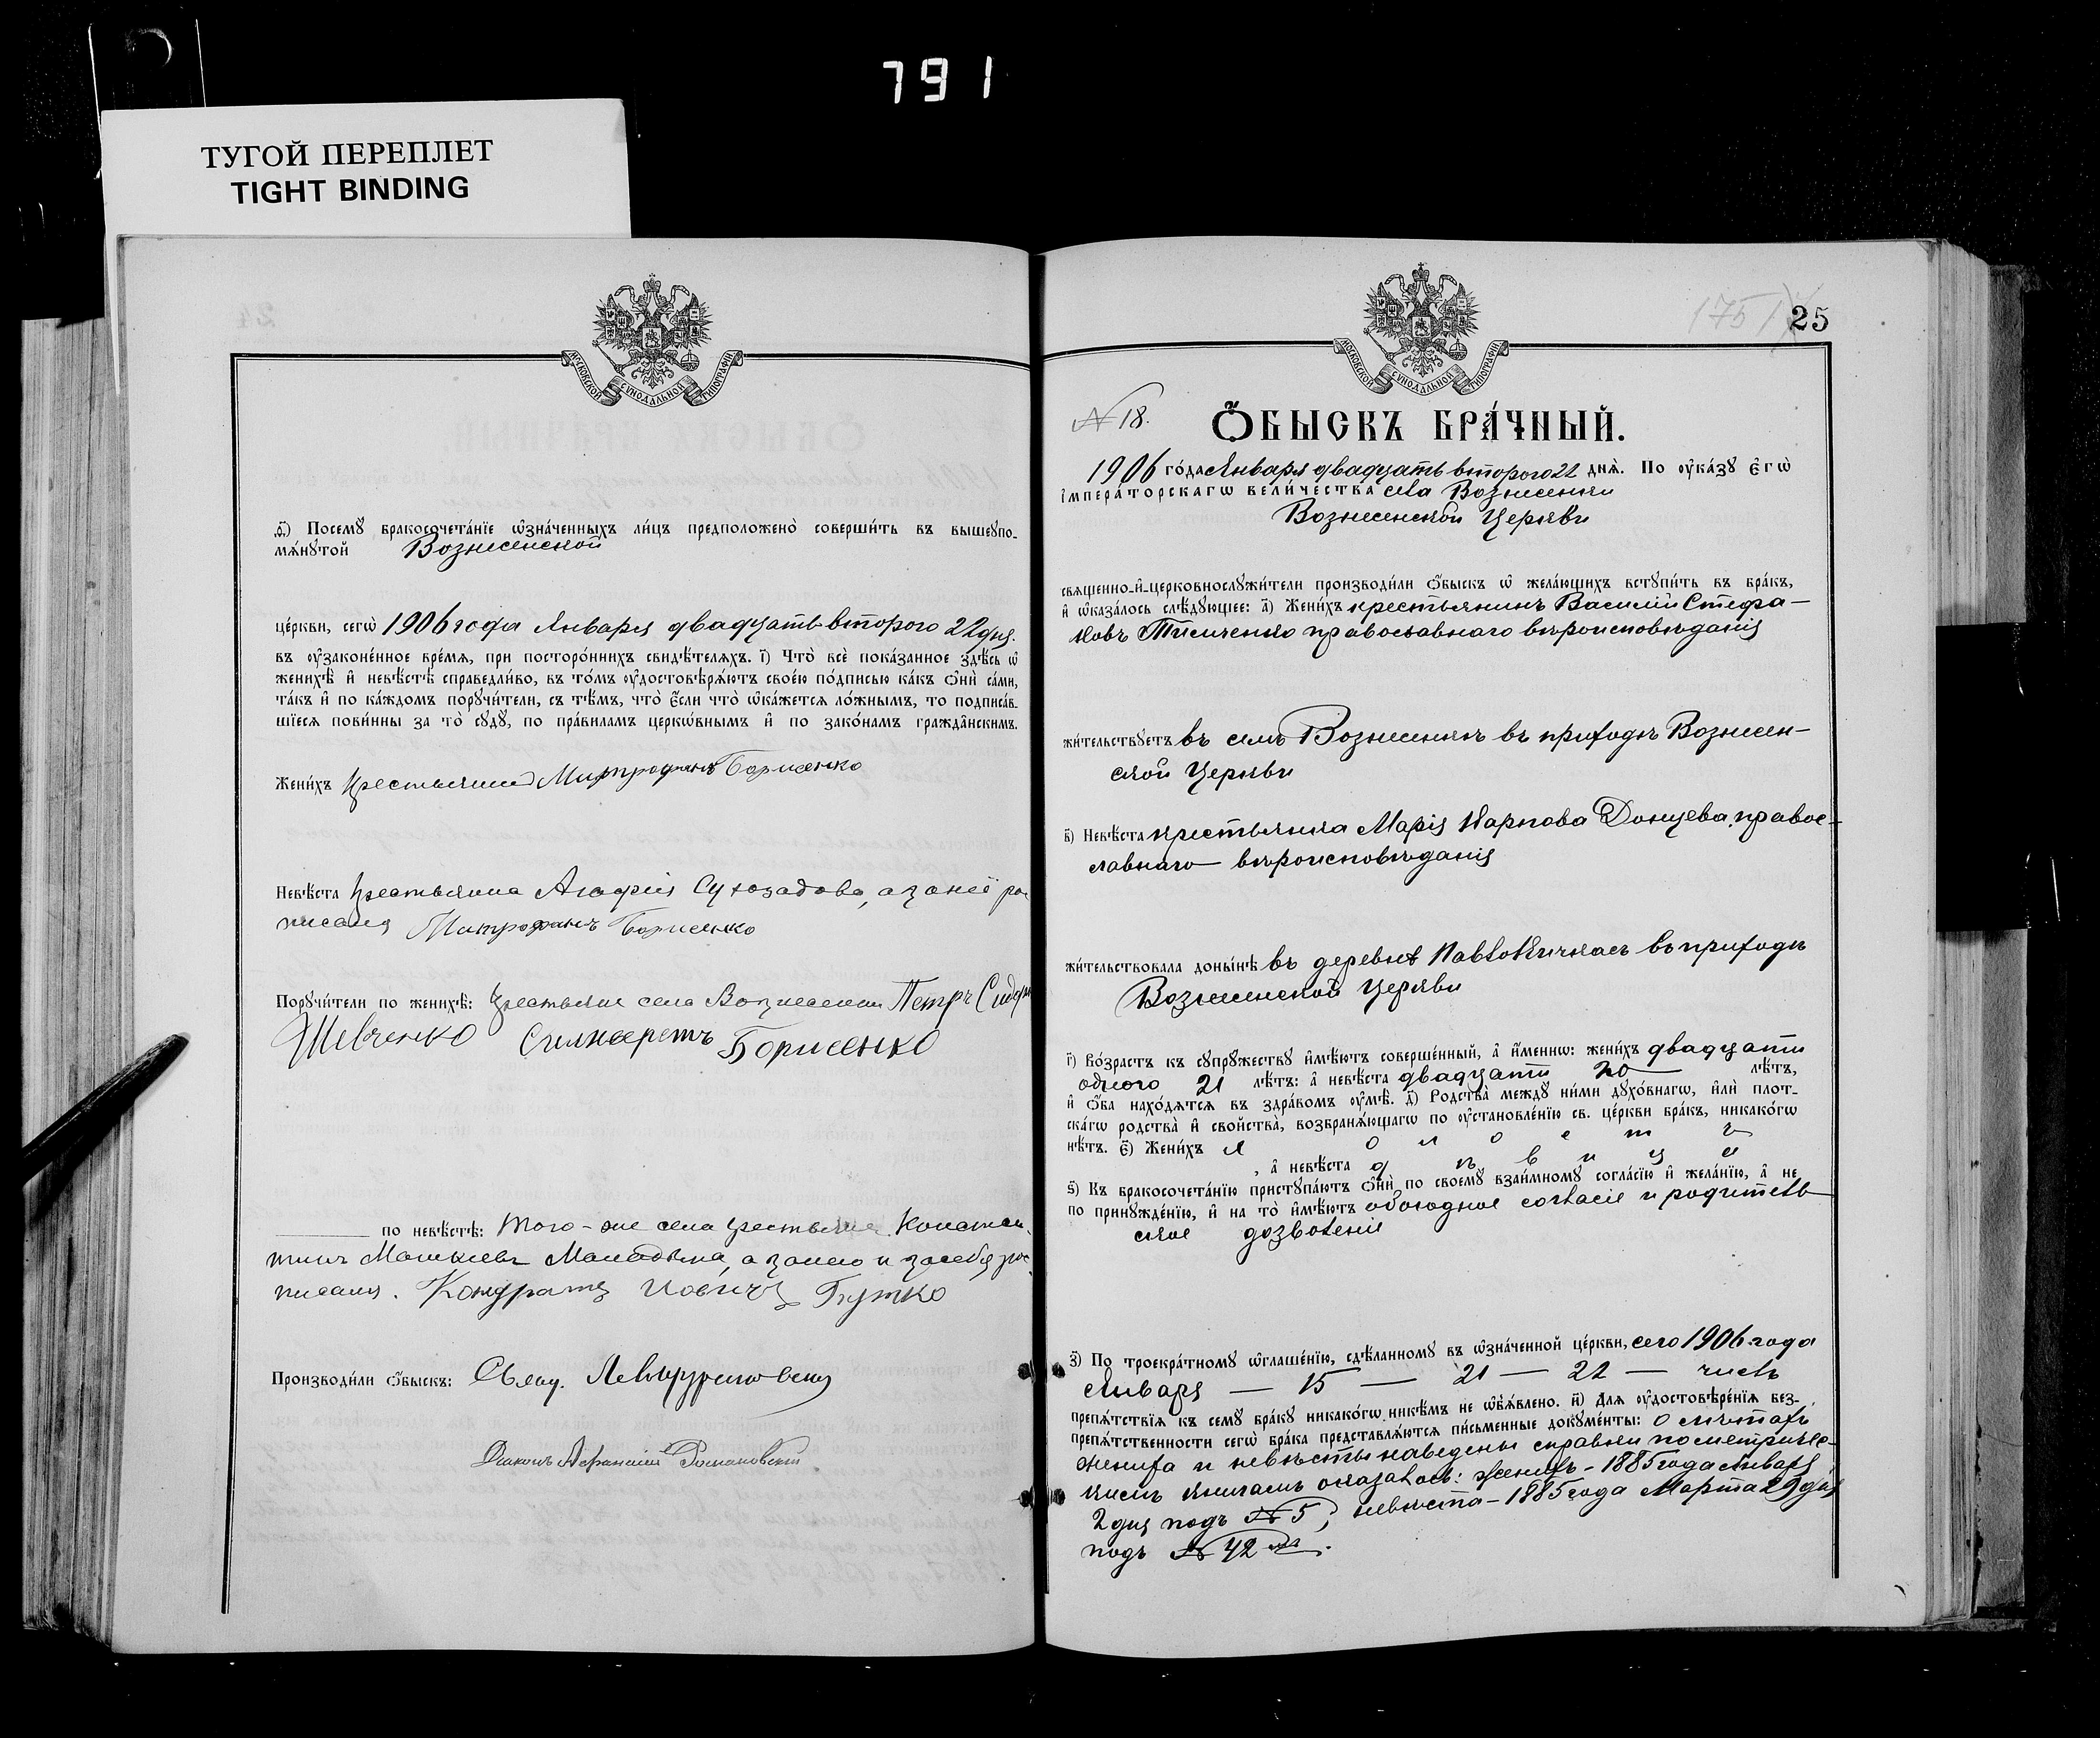 791
ТУГОЙ ПЕРЕПЛЕТ
TIGHT BINDING
МОСКОВСКОЙ СѴНОДАЛЬНОЙ ТИПОГРАФІИ
ѳ҃) Посемꙋ̀ бракосочета́нїе ѡ҆зна́ченныхъ ли́цъ предположено̀ соверши́ть въ вышеꙋпо-
мѧ́нꙋтой Вознесенской
це́ркви, сегѡ̀ 1906 года Января двадцать второго 22 дня.
въ ᲂу҆законе́нное вре́мѧ, при посторо́ннихъ свидѣ́телѧхъ. і҃) Что̀ всѐ пока́занное здѣ́сь ѡ҆
женихѣ̀ и҆ невѣ́стѣ справедли́во, въ то́мъ ᲂу҆достовѣрѧ́ютъ свое́ю по́дписью ка́къ ѻ҆нѝ са́ми,
та́къ и҆ по ка́ждомъ порꙋчи́тели, съ тѣ́мъ, что̀ є҆́сли что̀ ѡ҆ка́жетсѧ ло́жнымъ, то подписа́в-
шїесѧ пови́нны за то̀ сꙋдꙋ̀, по пра́виламъ церкѡ́внымъ и҆ по зако́намъ гражда̑нскимъ.
Жени́хъ Крестьянин Митрофанъ Борисенко
Невѣ́ста Крестьянка Агафія, а за неё рос
писался Митрофанъ Борисенко
Порꙋчи́тели по женихѣ̀: Крестьяне села Вознесенки Петръ Сидор
Шевченко Борисенко
по невѣ́стѣ: того-же села крестьяне Констан-
тинъ, а за него и за себя рос
писался. Кондратъ Иовичъ Бутко
Производи́ли ѻ҆́быскъ: Свящ.
Діаконъ Романовскій
МОСКОВСКОЙ СѴНОДАЛЬНОЙ ТИПОГРАФІИ
1751
25
№ 18.
Ѻ҆́БЫСКЪ БРА́ЧНЫЙ.
1906 го́да Января двадцать второго 22 днѧ̀. По ᲂу҆ка́зꙋ є҆гѡ̀
і҆мпера́торскагѡ вели́чества села Вознесенки
Вознесенской Церкви
свѧщенно-и҆-церковнослꙋжи́тели производи́ли ѻ҆́быскъ ѡ҆ жела́ющихъ встꙋпи́ть въ бра́къ,
и҆ ѡ҆каза́лось слѣ́дꙋющее: а҃) Жени́хъ крестьянинъ Василій Стефа-
новъ Тимченко православнаго вѣроисповѣданія
жи́тельствꙋетъ въ селѣ Вознесенкѣ въ приходѣ Вознесен-
ской Церкви
в҃) Невѣ́ста крестьянка Марія Карпова Донцева, правос-
лавнаго вѣроисповѣданія
жи́тельствовала доны́нѣ въ деревнѣ въ приходѣ
Вознесенской Церкви
г҃) Во́зрастъ къ сꙋпрꙋ́жествꙋ и҆мѣ́ютъ соверше́нный, а҆ и҆́меннѡ: жени́хъ двадцати
одного 21 лѣ́тъ: а҆ невѣ́ста двадцати 20 лѣ́тъ,
и҆ ѻ҆́ба нахо́дѧтсѧ въ здра́вомъ ᲂу҆мѣ̀. д҃) Родства̀ междꙋ ни́ми дꙋхо́внагѡ, и҆лѝ плот-
ска́гѡ родства̀ и҆ сво́йства̀, возбранѧ́ющагѡ по ᲂу҆становле́нїю св. це́ркви бра́къ, никако́гѡ
нѣ́тъ. є҃) Жени́хъ холостъ
, а҆ невѣ́ста дѣвица
ѕ҃) Къ бракосочета́нїю пристꙋпа́ютъ ѻ҆нѝ по своемꙋ̀ взаи́мномꙋ согла́сїю и҆ жела́нїю, а҆ не
по принꙋжде́нїю, и҆ на то̀ и҆мѣ́ютъ обоюдное согласіе и родитель-
ское дозволеніе
з҃) По троекра́тномꙋ ѡ҆глаше́нїю, сдѣ́ланномꙋ въ ѡ҆зна́ченной це́ркви, сего 1906 года
Января — 15 — 21 — 22 — числъ
препѧ́тствїѧ къ семꙋ̀ бра́кꙋ никако́гѡ никѣ́мъ не ѡ҆б̾ѧ́влено. и҃) Длѧ ᲂу҆достовѣре́нїѧ без-
препѧ́тственности сегѡ̀ бра́ка представлѧ́ютсѧ пи́сьменные докꙋме́нты: о лѣтахъ
жениха и невѣсты наведены справки по метричес-
кимъ книгамъ оказалось: женихъ - 1885 года Января
2 дня подъ № 5, невѣста - 1885 года Марта 29 дня
подъ № 42 мъ.